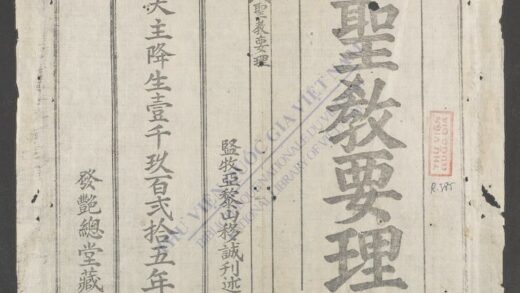 THƯ VIỆN
QUỐC GIA
聖教要理
監牧亞黎山移誠刊述
聖教要理
天主降生壹千玖百貳拾五年
發艷總堂藏
THƯ VIỆN QUỐC GIA VIỆT NAM
NATIONAL LIBRARY OF VIETNAM